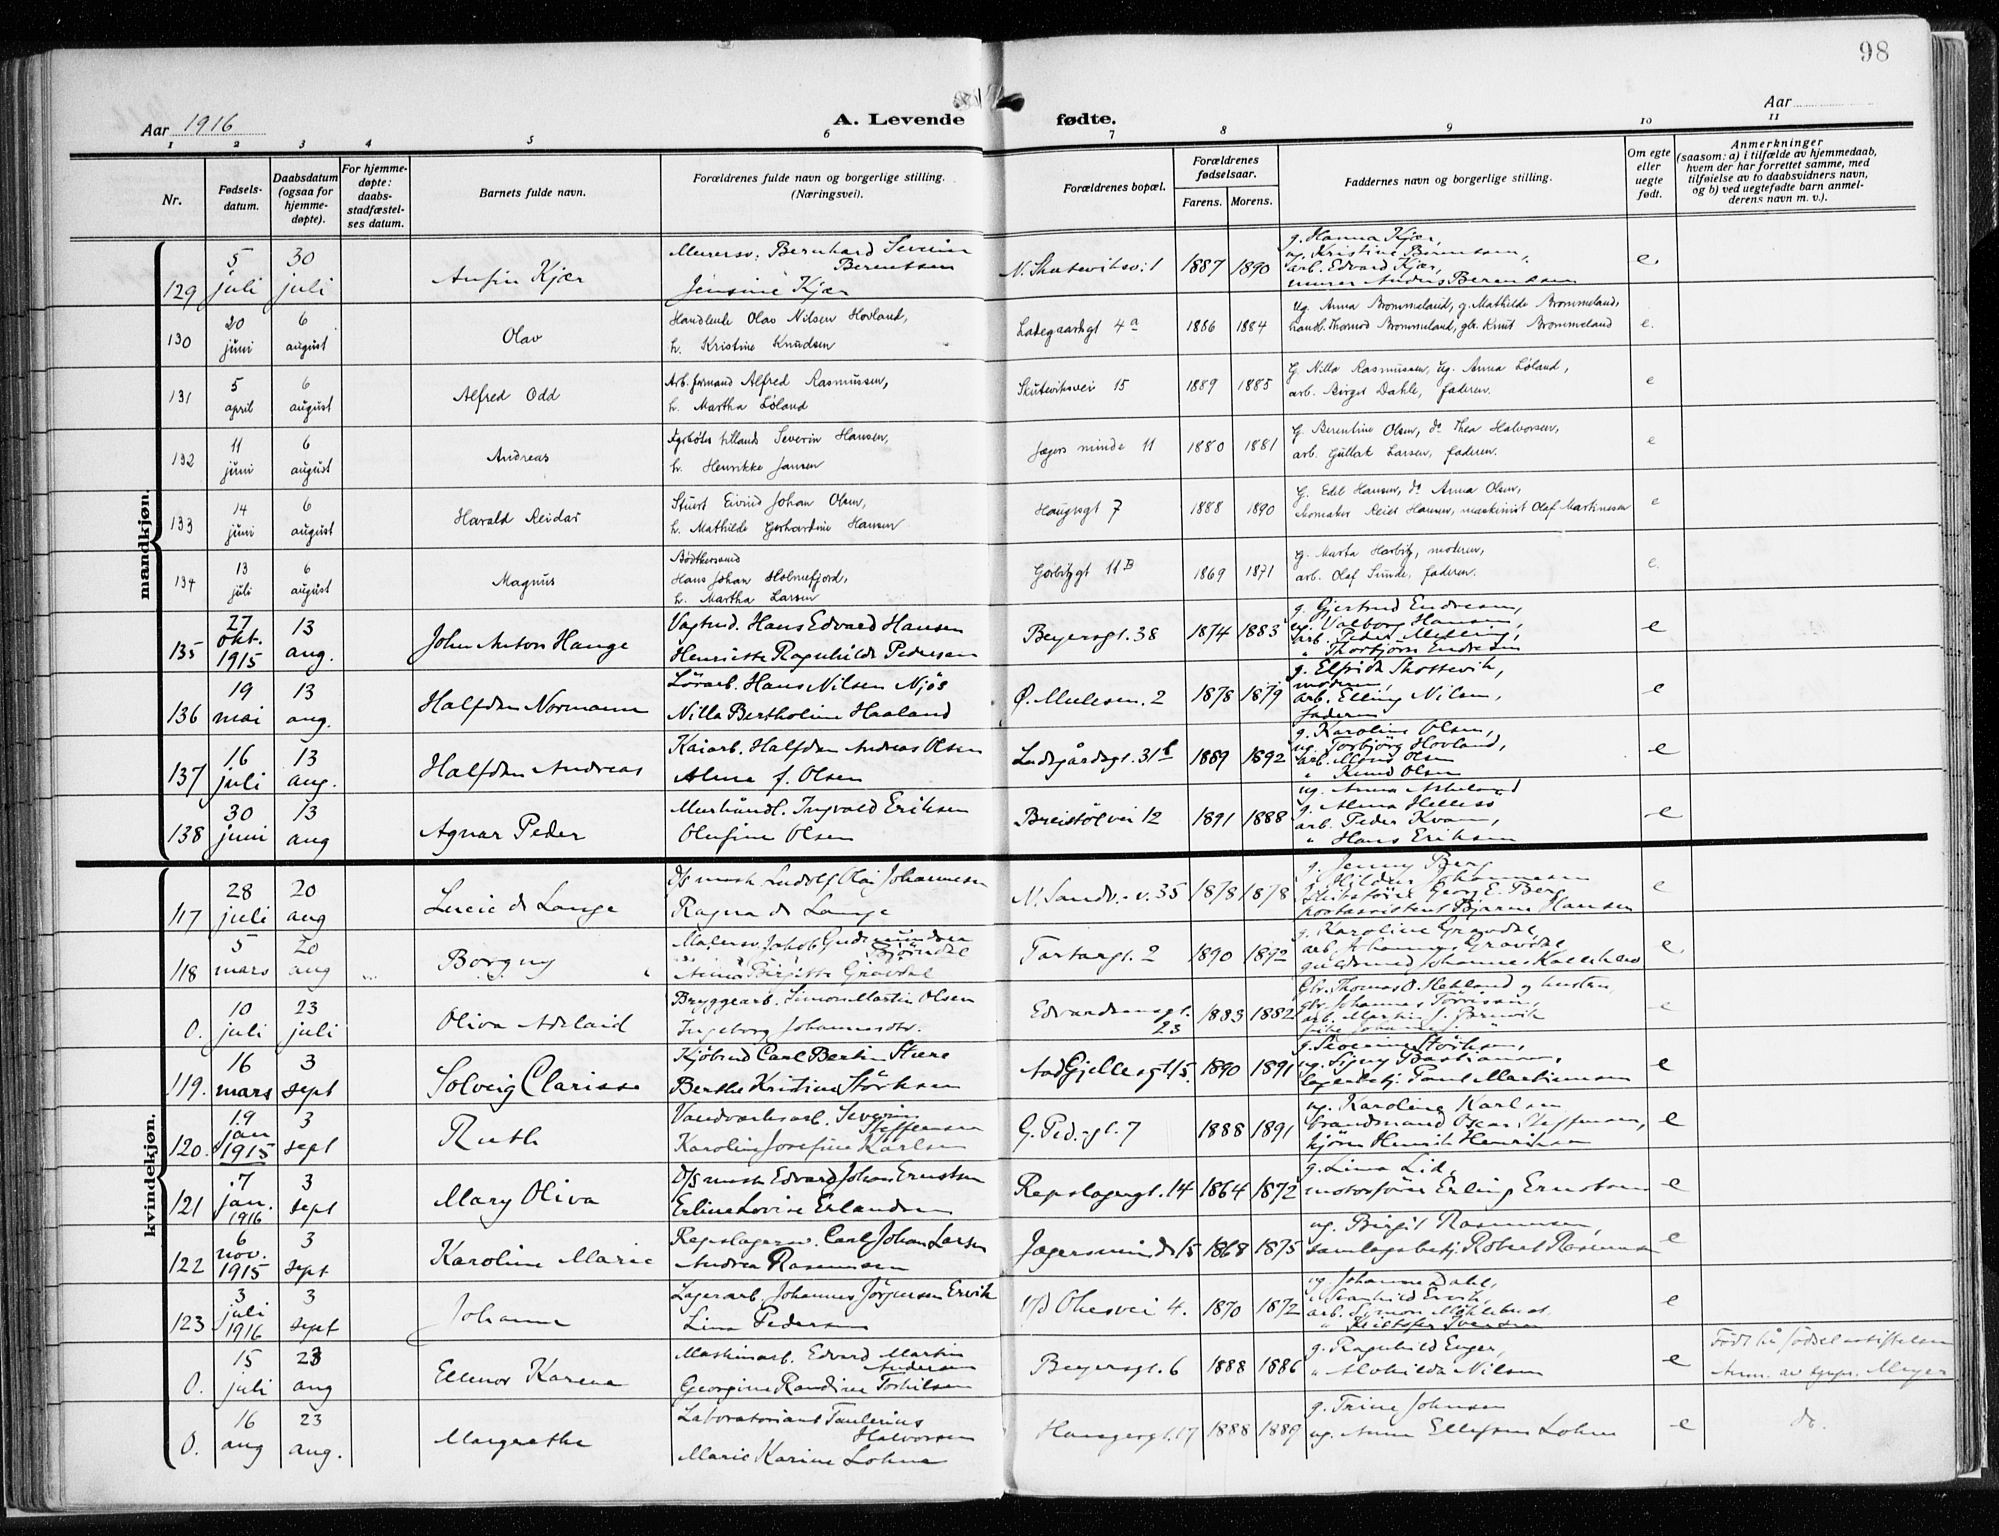 98
Aar 1916
A. Levende fødte.
Aar
1 2 3 4 5 6 7 8 9 10 11
Nr.
Fødsels-
datum.
Daabsdatum
(ogsaa for
hjemme-
døpte).
For hjemme-
døpte:
daabs-
stadfæstel-
ses datum.
Barnets fulde navn.
Forældrenes fulde navn og borgerlige stilling.
(Næringsvei).
Forældrenes bopæl.
Forældrenes
fødselsaar.
Farens. Morens.
Faddernes navn og borgerlige stilling.
Om egte
eller
uegte
født.
Anmerkninger
(saasom: a) i tilfælde av hjemmedaab,
hvem der har forrettet samme, med
tilføielse av to daabsvidners navn,
og b) ved uegtefødte barn anmel-
derens navn m. v.).
mandkjøn.
129 5 juli 30 juli Anfin Kjær
Murersv. Bernhard Severin
Berentsen
Jensine Kjær
N. Skuteviksv. 1 1887 1890
g. Hanna Kjær,
ug. Kristine Berentsen,
arb. Edvard Kjær,
murer Anders Berentsen
e.
130 20 juni 6 august Olav
Handlende Olav Nilsen Hovland,
h. Kristine Knudsen
Ladegaardsgt 4a 1886 1884
Ug. Anna Brommeland, g. Mathilde Brommeland,
handl. Thomod Brommeland, gbr. Knut Brommeland
e.
131 5 april 6 august Alfred Odd
Arb. formand Alfred Rasmussen,
h. Martha Løland
Skuteviksvei 15 1889 1885
G. Nilla Rasmussen, ug. Anna Løland,
arb. Birger Dahle, faderen.
e
132 11 juni 6 august Andreas
Severin Hansen,
h. Henrikke Jansen
Jægers minde 11 1880 1881
G. Berentine Olsen, do Thea Halvorsen,
arb. Gullak Larsen, faderen.
e
133 14 juni 6 august Harald Reidar
Stuert Eivind Johan Olsen,
h. Mathilde Gerhardine Hansen
Haugsgt 7 1888 1890
G. Edel Hansen, do Anna Olsen,
skomaker Reier Hansen, maskinist Olaf Martinesen
e
134 13 juli 6 august Magnus
Bødkersvend
Hans Johan Holmefjord,
h. Martha Larsen
Gørbitzgt 11B 1869 1871
g. Marta Harbitz, moderen,
arb. Olaf Sunde, faderen.
e.
135 27 okt. 1915 13 aug. John Anton Hauge
Vagtmd. Hans Edvard Hansen
Henriette Ragnhilde Pedersen
Beyersgt. 38 1874 1883
g. Gjertrud Endresen,
ug. Valborg Hansen,
arb. Peder Melling,
" Thorbjørn Endresen
e
136 19 mai 13 aug. Halfdan Normann
Lørarb. Hans Nilsen Njøs
Nilla Bertholine Haaland
Ø. Mulesm. 2 1878 1879
g. Elfrida Skottevik,
moderen,
arb. Elling Nilsen,
faderen
e
137 16 juli 13 aug. Halfdan Andreas
Kaiarb. Halfdan Andreas Olsen
Alma f. Olsen
Ladegårdsgt. 31b 1889 1892
g. Karoline Olsen,
ug. Torbjörg Hovland,
arb. Mons Olsen
" Knud Olsen
e
138 30 juni 13 aug Agnar Peder
Murhåndl. Ingvald Eriksen
Olufine Olsen
Breistölvei 12 1891 1888
ug. Anna Askeland
g. Alma Hellesø
arb. Peder Kvam,
" Hans Eriksen
e
kvindekjøn.
117 28 juli 20 aug Lucie de Lange
D/s mask. Ludolf Olai Johannesen
Ragna de Lange
N. Sandv.-v. 35 1878 1878
g. Jenny Berg
g. Hilda Johannesen
Skibsfører Georg E. Berg,
postassistent Bjarne Hansen
e
118 5 mars 20 aug Borgny
Malersv. Jakob Gudmundsen
Bjørndal
Anna Birgitte Gravdal
Tartargt. 2 1890 1892
g. Karoline Gravdal,
arb. Johannes Gravdal
guldsmed Johannes
e.
0. 10 juli 23 juli Oliva Adelaid
Bryggearb. Simon Martin Olsen
Ingeborg Johannesdtr.
Edvardsensgt. 23 1883 1882
Gbr. Thomas O. Hetland og hustru,
gbr. Johannes Tørrissen,
arb. Martin J.
e
119. 16 mars 3 sept Solveig Clarisse
Kjöbmd Carl Bertin Stære
Berthe Kristine Störksen
Aad Gjellesgt 15. 1890 1891
g. Severine Störksen,
ug. Signy Bastiansen,
lagerbetj. Paul Martinsen
e
120. 19 jan 1915 3 sept Ruth
Vandverksarb. Severin
Steffensen
Karoline Josefine Karlsen
G. Ped.-gt. 7 1888 1891
ug. Karoline Karlsen
brandmand Oscar Steffensen,
kjörer Henrik Henriksen
e
121 7 jan. 1916 3 sept Mary Oliva
D/s mask Edvard Johan Ernstsen
Erline Lovise Erlandsen
Repslagergt. 14 1864 1872
g. Lina Lid,
motorfører Erling Ernstsen
e
122 6 nov. 1915 3 sept Karoline Marie
Repslagersv. Carl Johan Larsen
Andrea Rasmussen
Jægersminde 15 1868 1875
ug. Birgit Rasmussen,
samlagsbetj. Robert Rasmussen
e
123 3 juli 1916 3 sept Johanne
Lagerarb. Johannes Jørgensen Ervik
Lina Pedersen
Ohesvei 4. 1870 1872
ug. Johanne Dahl,
" Svanhild Ervik,
arb. Simon
" Kristofer Svendsen
e
0. 15 juli 23 aug Ellenor Karena
Maskinarb. Edvard Martin
Andersen
Georgine Randine Torkilsen
Beyersgt. 6 1888 1886
g. Ragnhild Enger,
" Alvhilda Nilsen
e
Født på fødselsstiftelsen
Anm. av Meyer
0. 16 aug 23 aug. Margrethe
Laboratoriant Taulerius
Halvorsen
Marie Karine Lohne
Hansgergt. 17 1888 1889
g. Trine Johnsen
ug. Anna Ellefsen Lohne
e
do.